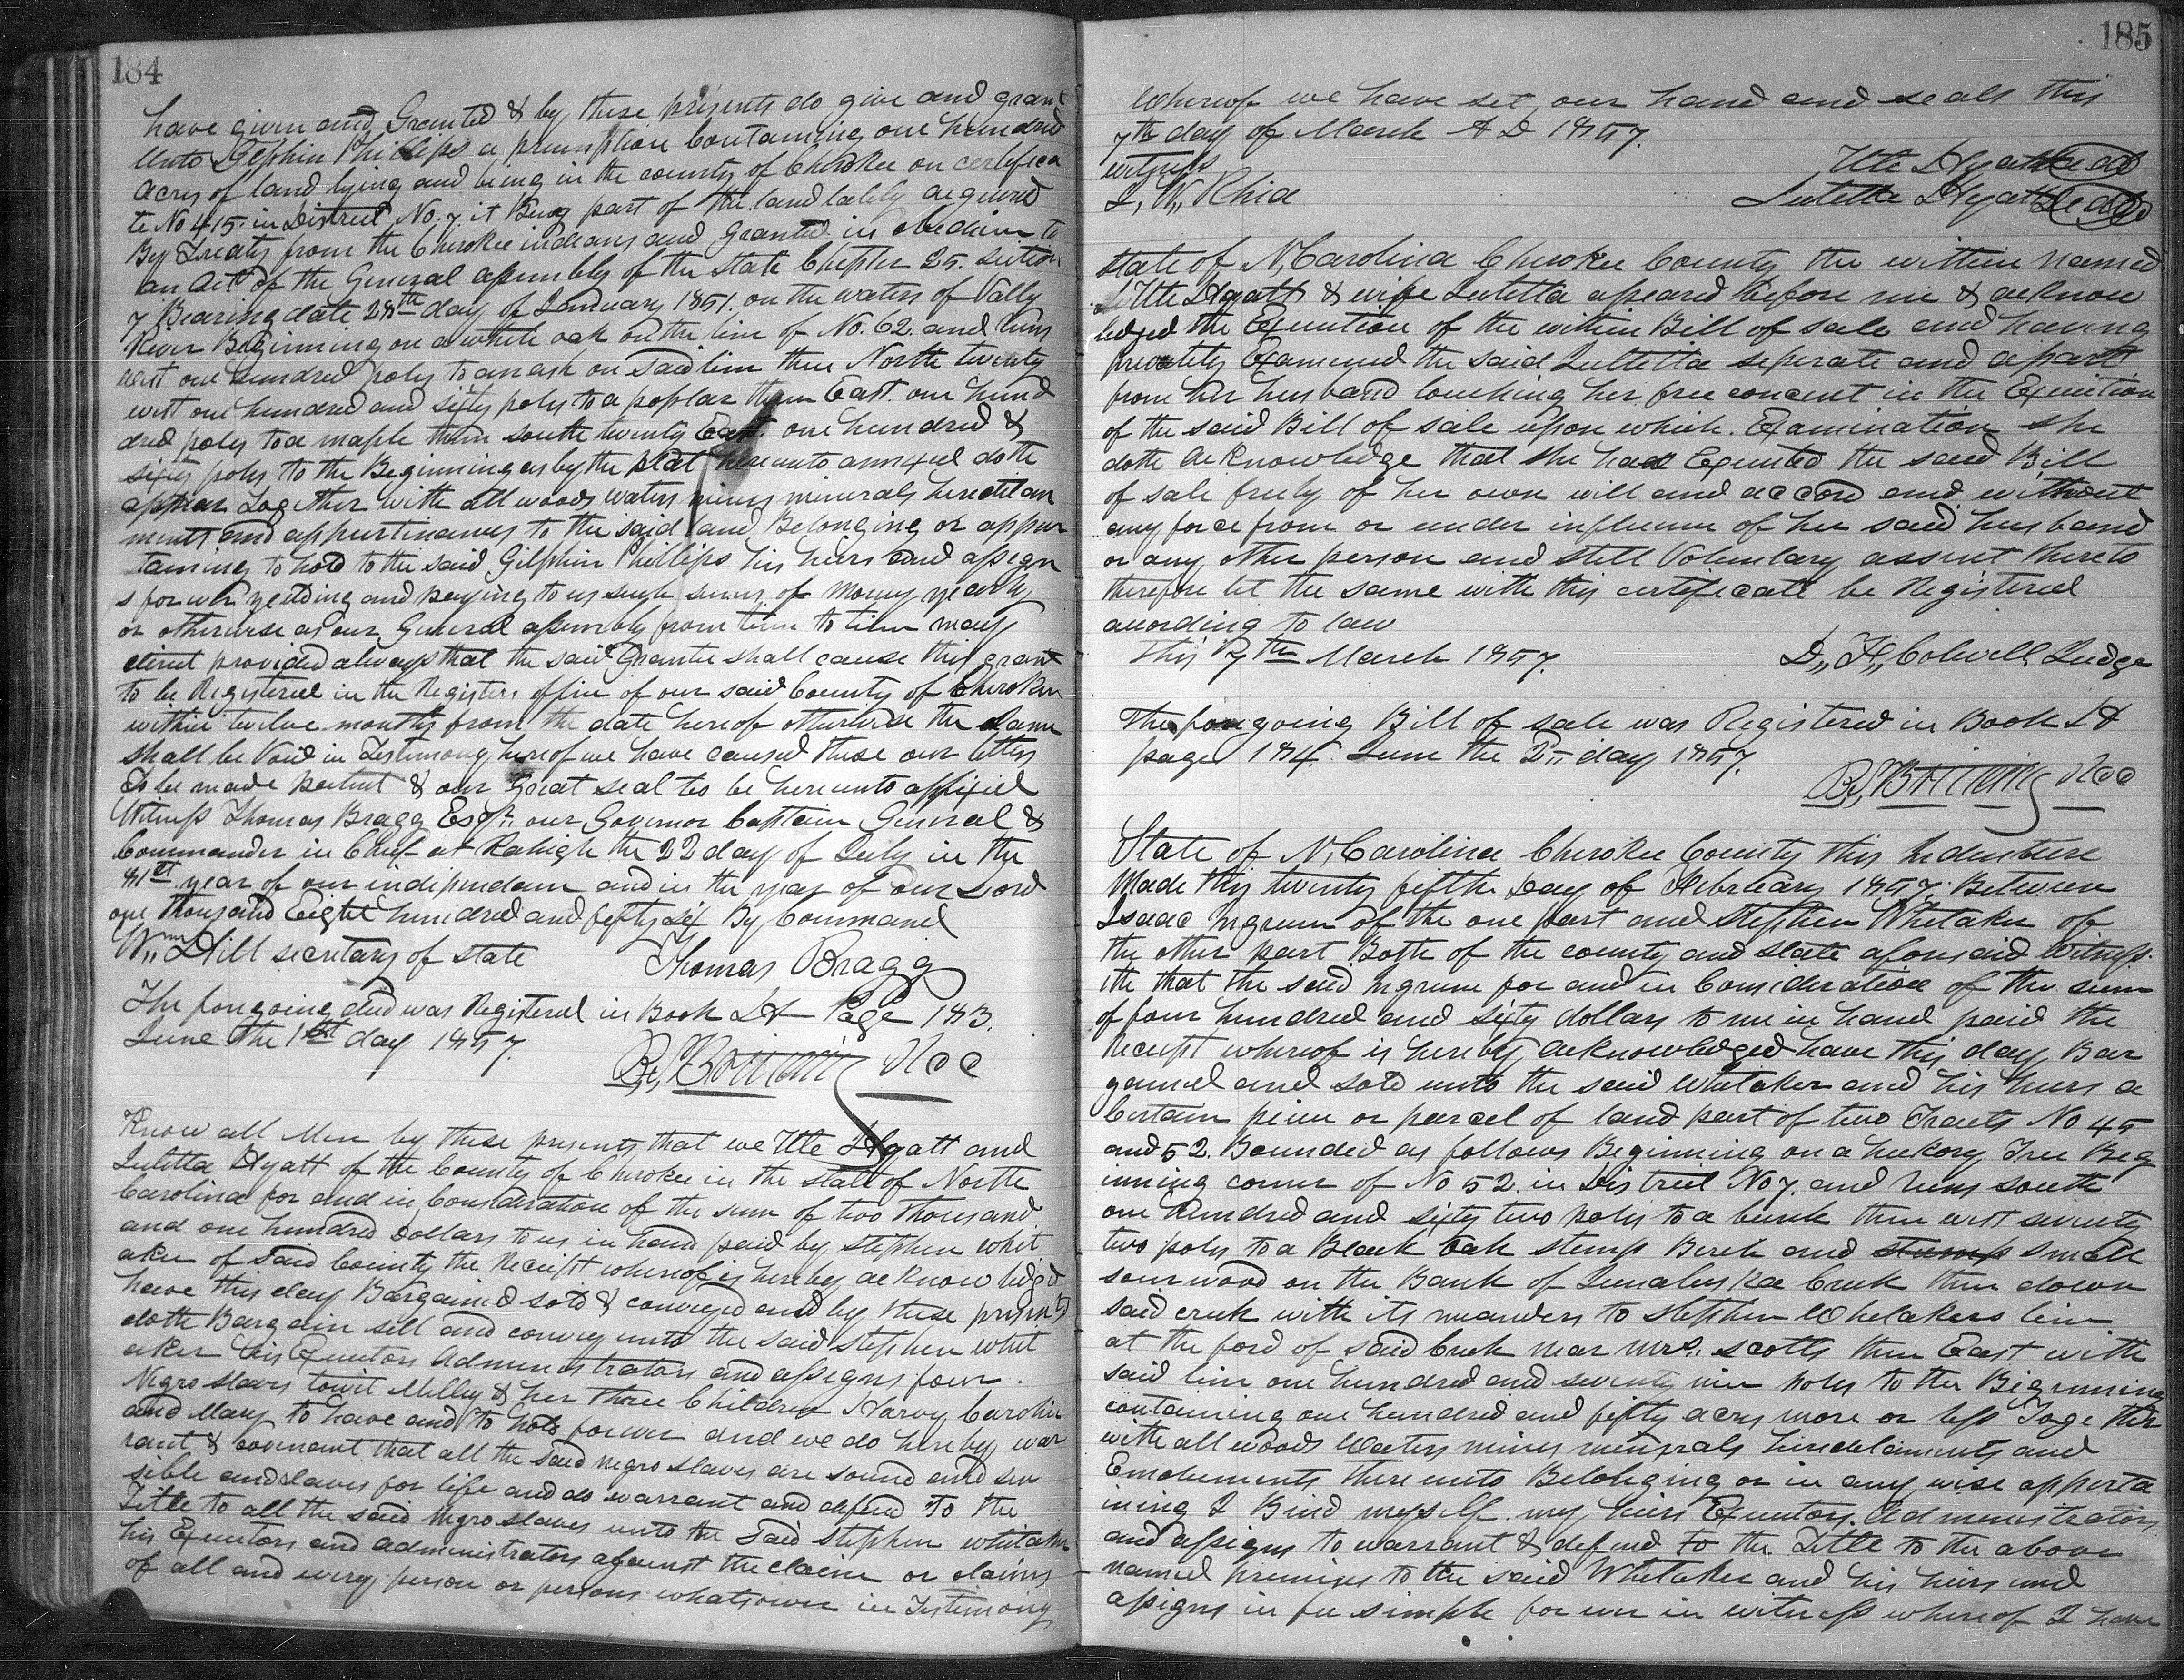 184
have given and Granted & by these presents do give and grant
unto Gilphin Phillips a preemption Containing one hundred
acres of land lying and being in the county of Cherokee on certifica
te No 415 in District No. 7 it Being part of the land lately acquired
By Treaty from the Cherokee indians and Granted in obedience to
an act of the General assembly of the state Chapter 25. Section
7 Bearing date 28th day of January 1851. on the waters of Vally
River Beginning on a white oak on the line of No. 62. and runs
west one hundred poles to an ash on said line then North twenty
west one hundred and sixty poles to a poplar then East. one hund
dred poles to a maple then south twenty East. one hundred &
sixty poles to the Beginning as by the plat hereunto annexed doth
appear Together with all woods waters mines minerals hereditam
ments and appurtinances to the said land Belonging or appur
taining to hold to the said Gilphin Phillips his heirs and assign
s forever yeilding and paying to us such sums of money yearly
or otherwise as our General assembly from time to time may
direct provided always that the said Grantee shall cause this grant
to be Registered in the Registers office of our said County of Cherokee
within twelve months from the date hereof otherwise the same
shall be Void in Testimony hereof we have caused these our letters
To be made patent & our Great seal to be hereunto affixed
Witness Thomas Bragg Esqr. our Governor Captain General &
Commander in Chief at Raleigh the 22 day of July in the
81st year of our independence and in the year of our Lord
one thousand Eight hundred and fifty six By Command
Wm Hill secretary of state Thomas Bragg
The foregoing deed was Registered in Book Page 183.
June the 1st day 1857.
Know all Men by these presents that we Utte Hyatt and
Juletta Hyatt of the County of Cherokee in the state of North
Carolina for and in Consideration of the sum of two thousand
and one hundred Dollars to us in hand paid by Stephen whit
aker of said County the Receipt whereof is hereby acknowledged
have this day Bargained sold & conveyed and by these presents
doth Bargain sell and convey unto the said Stephen whit
aker his Executors administrators and assigns four
Negro slaves towit Milley & her three Children Harvy Carolin
and Mary to have and to hold forever and we do hereby war
rant & covenant that all the said negro slaves are sound and sen
sible and slaves for life and do warrant and defend To the
Title to all the said Negro slaves unto the said Stephen whitaker
his Executors and administrators against the claim or claims
of all and every person or persons whatsoever in Testimony
185
Whereof we have set our hand and seals this
7th day of March A D 1857.
witness Utte Hyatt Seal
J. W. Rhia Juletta Hyatt Seal
State of N. Carolina Cherokee County the within named
Utte Hyatt & wife Juletta apeared before me & acknow
ledged the Execution of the within Bill of sale and having
privately Examined the said Juletta seperate and apart
from her husband touching her free concent in the Execution
of the said Bill of sale upon which Examination she
doth acknowledge that she had Executed the said Bill
of sale freely of her own will and accord and without
any force from or under influence of her said husband
or any other person and still Voluntary assent thereto
therefore let the same with this certificate be Registered
according to law
This 7th March 1857. Judge
The foregoing Bill of sale was Registered in Book
page 184. June the 2 day 1857.
State of N, Carolina Cherokee County this Indenture
Made this twenty fifth day of February 1857. Between
Isaac Ingrum of the one part and Stephen Whitaker of
the other part Both of the county and state aforesaid Witness
ith that the said Ingrum for and in Consideration of the sum
of four hundred and sixty dollars to me in hand paid the
Receipt whereof is hereby acknowledged have this day Bar
gained and sold unto the said Whitaker and his heirs a
Certain piece or parcel of land part of two Tracts No 45
and 52. Bounded as follows Beginning on a hickory Tree Beg
inning corner of No 52 in District No 7. and runs south
one hundred and sixty two poles to a bunk then west seventy
two poles to a Black Oak stump Birch and stump small
sourwood on the Bank of Junaluska Creek then down
said creek with its meanders to Stephen Whitakers line
at the ford of said Creek near Mrs. Scotts then East with
said line one hundred and seventy nine poles to the Beginning
containing one hundred and fifty acres more or less Togethr
with all woods Waters mines minerals hereditaments and
Emoluments thereunto Belonging or in any wise apperta
ining I Bind myself my heirs Executors. Administrators
and assigns to warrant & defend to the Title to the above
named premises to the said Whitaker and his heirs and
assigns in fee simple forever in witness whereof I have